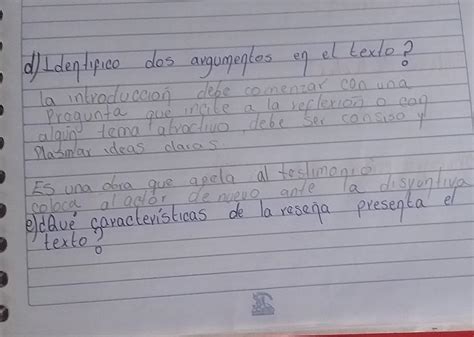 d) Identifico dos argumentos en el texto?
la introduccion debe comenzar con una
Pregunta que incite a la reflexion o con
algun tema atractivo, debe ser conciso y
Plasmar ideas claras.
Es una obra que apela al testimonio
coloca al actor de nuevo ante la disyuntiva
e) ¿Qué características de la reseña presenta el
texto?